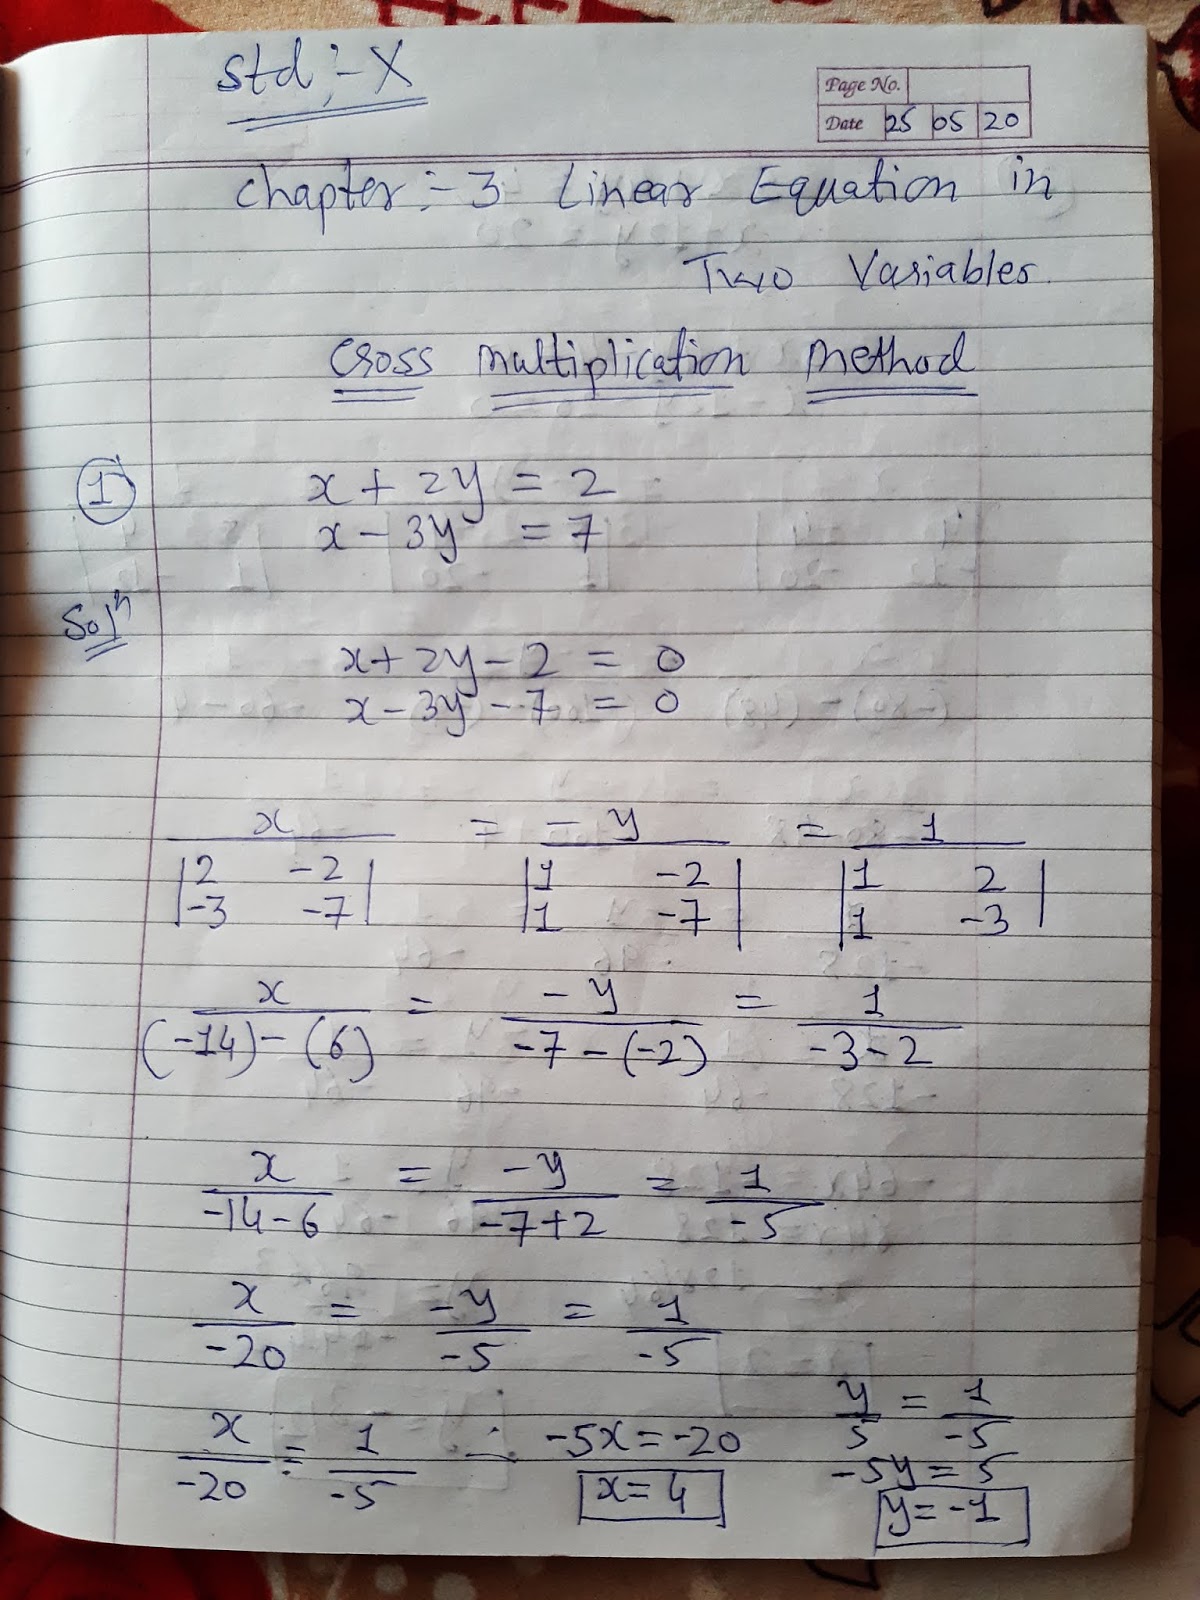 Std :- X
Page No.
Date 25 05 20
Chapter :- 3 Linear Equation in
Two Variables.
Cross Multiplication Method
1
x + 2y = 2
x - 3y = 7
Solⁿ
x + 2y - 2 = 0
x - 3y - 7 = 0
x = - y = 1
|2 -2| |1 -2| |1 2|
|-3 -7| |1 -7| |1 -3|
x = - y = 1
(-14) - (6) -7 - (-2) -3 - 2
x = - y = 1
-14 - 6 -7 + 2 -5
x = - y = 1
-20 -5 -5
x = 1 ∴ -5x = -20
-20 -5 x = 4
y = 1
5 -5
-5y = 5
y = -1